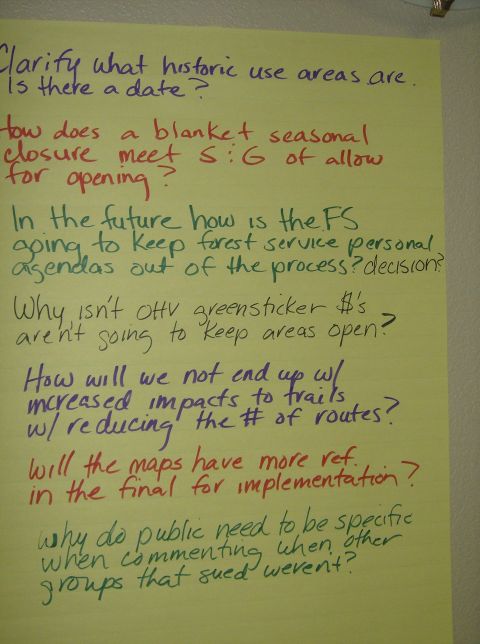 Clarify what historic use areas are.
Is there a date?
How does a blanket seasonal
closure meet S:G of allow
for opening?
In the future how is the FS
going to keep forest service personal
agendas out of the process? decision?
Why isn't OHV greensticker $'s
aren't going to keep areas open?
How will we not end up w/
increased impacts to trails
w/ reducing the # of routes?
Will the maps have more ref.
in the final for implementation?
why do public need to be specific
when commenting when other
groups that sued werent?